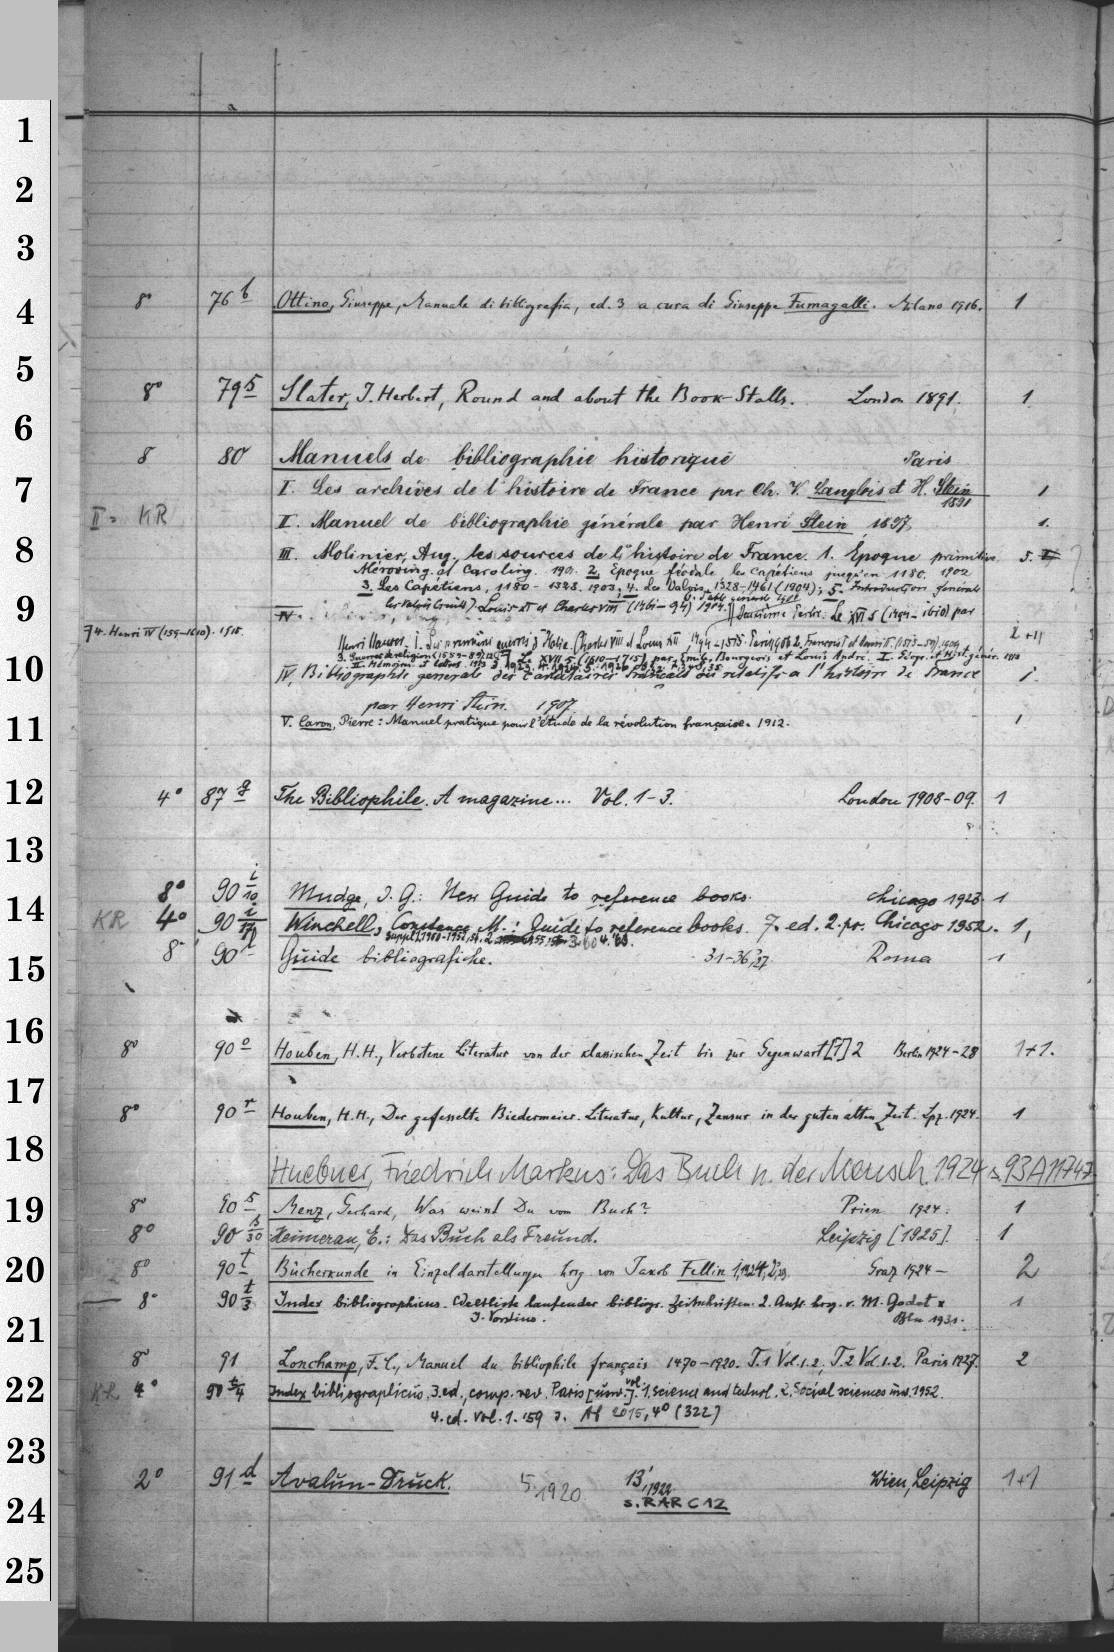 a
1
2
3
4
8° 76 b Ottino, Giuseppe, Manuale di bibliografia, ed. 3 a cura di Giuseppe Fumagalli. Milano 1916. 1
5
8° 79 5 Slater, J. Herbert, Round and about the Book-Stalls. London 1891. 1
6
8 80 Manuels de bibliographie historique Paris
7
I. Les archives de l'histoire de France par Ch. V. Langlois et H. Stein 1891 1
II = KR II. Manuel de bibliographie générale par Henri Stein 1897, 1.
8
III. Molinier, Aug. les sources de l'histoire de France. 1. Époque primitive 5.
Méroving. et Caroling. 1901. 2. Epoque féodale les Capétiens jusqu'en 1180. 1902
3. Les Capétiens, 1180-1328. 1903. 4. Les Valois, 1328-1461 (1904); 5. Introduction générale
9
Louis XI et Charles VIII (1461-94) 1904. Le XVI s (1494-1610) par
4. Henri IV (1589-1610). 1915.
Henri Hauser. Charles VIII et Louis XII, 1494-1515. Paris 2. François I et Henri II. 2+11
3. (1559-89) Le XVII s. (1610-1715) par Emile Bourgeois et Louis André. I.
II. Mémoires et lettres. 1913
10
IV. Bibliographie générale des français ou relatifs à l'histoire de France 1.
par Henri Stein. 1907.
11
V. Caron, Pierre: Manuel pratique pour l'étude de la révolution française. 1912. 1
12
4° 87 g The Bibliophile. A magazine... Vol. 1-3. London 1908-09. 1
13
8° 90 i/10 Mudge, I. G.: New Guide to reference books. Chicago 1923. 1
14
KR 4° 90 Winchell, Constance M.: Guide to reference books. 7. ed. 2. pr. Chicago 1952. 1,
8° 90 l Guide bibliografiche. 31-36, 27 Roma 1
15
16
8° 90 o Houben, H.H., Verbotene Literatur von der klassischen Zeit bis zur Gegenwart [1] 2 Berlin 1924-28 1+1.
17
8° 90 r Houben, H.H., Der gefesselte Biedermeier. Literatur, Kultur, Zensur in der guten alten Zeit. Lpz. 1924. 1
18
Huebner, Friedrich Markus: Das Buch u. der Mensch 1924 s. 93A11747
19
8° 90 s Menz, Gerhard, Was weint Du vom Buch? Prien 1924. 1
8° 90 s/30 Heimeran, E.: Das Buch als Freund. Leipzig [1925]. 1
20
8° 90 t Bücherkunde in Einzeldarstellungen hrsg von Jakob Fellin Graz 1924- 2
8° 90 t/3 Index bibliographicus. Weltliste laufender bibliogr. Zeitschriften. 2. Aufl. hrsg. v. M. Godet u 1
21
J. Vorstius. Bln 1931.
8° 91 Lonchamp, F.C., Manuel du bibliophile français 1470-1920. T.1 Vol.1.2, T.2 Vol.1.2. Paris 1927. 2
22
KR 4° 90 t/4 Index bibliographicus, 3. ed, comp. rev. Paris vol. 1. Science and technol. 2. Social sciences 1952.
4. ed. vol. 1. '59 s. AB 2015, 4° (322)
23
2° 91 d Avalun-Druck. 5. 1920 13, 1922 Wien, Leipzig 1+1
24
s. RAR C 12
25